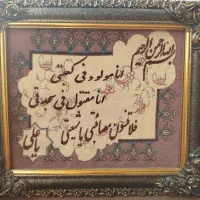 بسم الله الرحمن الرحیم
انا مولود فی کعبتی
انا مقتول فی سجدتی
فلا تنسوا مصائبی یا شیعتی
یا علی